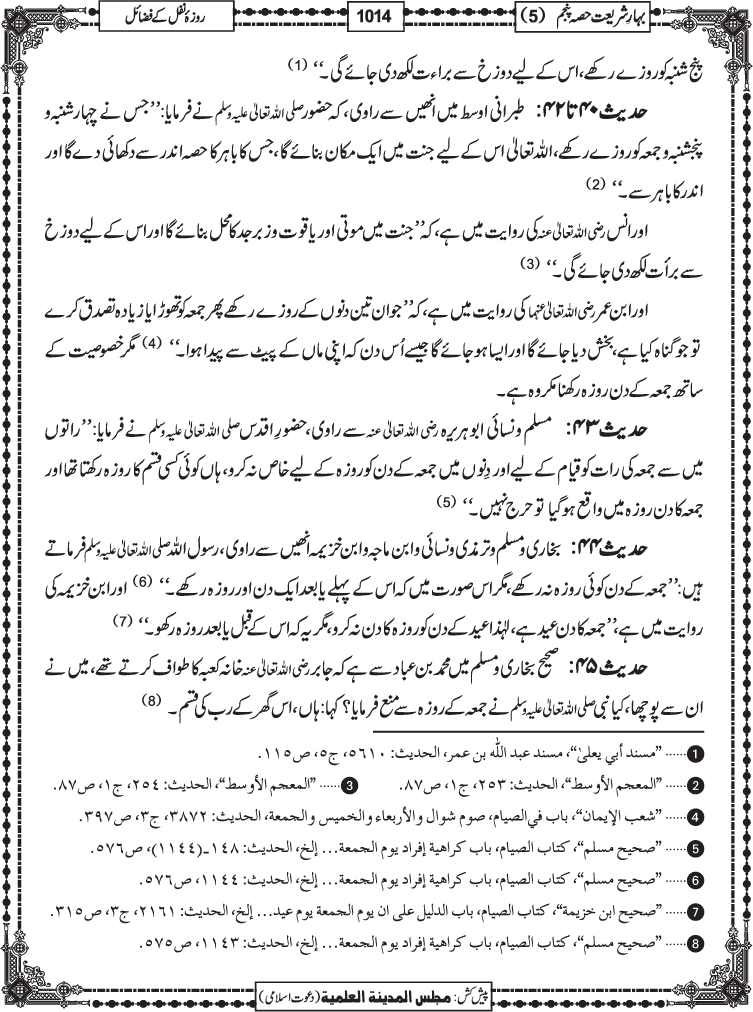 بہارِ شریعت حصہ پنجم (5)
1014
روزہ نفل کے فضائل
پنج شنبہ کو روزے رکھے، اس کے لیے دوزخ سے براءت لکھ دی جائے گی۔‘‘ (1)
حدیث ۴۰ تا ۴۲: طبرانی اوسط میں انھیں سے راوی، کہ حضور صلی اللہ تعالیٰ علیہ وسلم نے فرمایا: ’’جس نے چہار شنبہ و
پنجشنبہ و جمعہ کو روزے رکھے، اللہ تعالیٰ اس کے لیے جنت میں ایک مکان بنائے گا، جس کا باہر کا حصہ اندر سے دکھائی دے گا اور
اندر کا باہر سے۔‘‘ (2)
اور انس رضی اللہ تعالیٰ عنہ کی روایت میں ہے، کہ ’’جنت میں موتی اور یاقوت و زبرجد کا محل بنائے گا اور اس کے لیے دوزخ
سے برأت لکھ دی جائے گی۔‘‘ (3)
اور ابن عمر رضی اللہ تعالیٰ عنہما کی روایت میں ہے، کہ ’’جو ان تین دنوں کے روزے رکھے پھر جمعہ کو تھوڑا یا زیادہ تصدق کرے
تو جو گناہ کیا ہے، بخش دیا جائے گا اور ایسا ہو جائے گا جیسے اُس دن کہ اپنی ماں کے پیٹ سے پیدا ہوا۔‘‘ (4) مگر خصوصیت کے
ساتھ جمعہ کے دن روزہ رکھنا مکروہ ہے۔
حدیث ۴۳: مسلم و نسائی ابوہریرہ رضی اللہ تعالیٰ عنہ سے راوی، حضورِ اقدس صلی اللہ تعالیٰ علیہ وسلم نے فرمایا: ’’راتوں
میں سے جمعہ کی رات کو قیام کے لیے اور دِنوں میں جمعہ کے دن کو روزہ کے لیے خاص نہ کرو، ہاں کوئی کسی قسم کا روزہ رکھتا تھا اور
جمعہ کا دن روزہ میں واقع ہوگیا تو حرج نہیں۔‘‘ (5)
حدیث ۴۴: بخاری و مسلم و ترمذی و نسائی و ابن ماجہ و ابن خزیمہ انھیں سے راوی، رسول اللہ صلی اللہ تعالیٰ علیہ وسلم فرماتے
ہیں: ’’جمعہ کے دن کوئی روزہ نہ رکھے، مگر اس صورت میں کہ اس کے پہلے یا بعد ایک دن اور روزہ رکھے۔‘‘ (6) اور ابن خزیمہ کی
روایت میں ہے، ’’جمعہ کا دن عید ہے، لہٰذا عید کے دن کو روزہ کا دن نہ کرو، مگر یہ کہ اس کے قبل یا بعد روزہ رکھو۔‘‘ (7)
حدیث ۴۵: صحیح بخاری و مسلم میں محمد بن عباد سے ہے کہ جابر رضی اللہ تعالیٰ عنہ خانہ کعبہ کا طواف کرتے تھے، میں نے
ان سے پوچھا، کیا نبی صلی اللہ تعالیٰ علیہ وسلم نے جمعہ کے روزہ سے منع فرمایا؟ کہا: ہاں، اس گھر کے رب کی قسم۔ (8)
1 ...... ”مسند أبي يعلیٰ“، مسند عبد اللّٰه بن عمر، الحديث: ٥٦١٠، ج٥، ص١١٥.
2 ...... ”المعجم الأوسط“، الحديث: ٢٥٣، ج١، ص٨٧. 3 ...... ”المعجم الأوسط“، الحديث: ٢٥٤، ج١، ص٨٧.
4 ...... ”شعب الإيمان“، باب في الصيام، صوم شوال والأربعاء والخميس والجمعة، الحديث: ٣٨٧٢، ج٣، ص٣٩٧.
5 ...... ”صحيح مسلم“، كتاب الصيام، باب كراهية إفراد يوم الجمعة... إلخ، الحديث: ١٤٨ـ(١١٤٤)، ص٥٧٦.
6 ...... ”صحيح مسلم“، كتاب الصيام، باب كراهية إفراد يوم الجمعة... إلخ، الحديث: ١١٤٤، ص٥٧٦.
7 ...... ”صحيح ابن خزيمة“، كتاب الصيام، باب الدليل على ان يوم الجمعة يوم عيد... إلخ، الحديث: ٢١٦١، ج٣، ص٣١٥.
8 ...... ”صحيح مسلم“، كتاب الصيام، باب كراهية إفراد يوم الجمعة... إلخ، الحديث: ١١٤٣، ص٥٧٥.
پیش کش: مجلس المدينة العلمية (دعوتِ اسلامی)